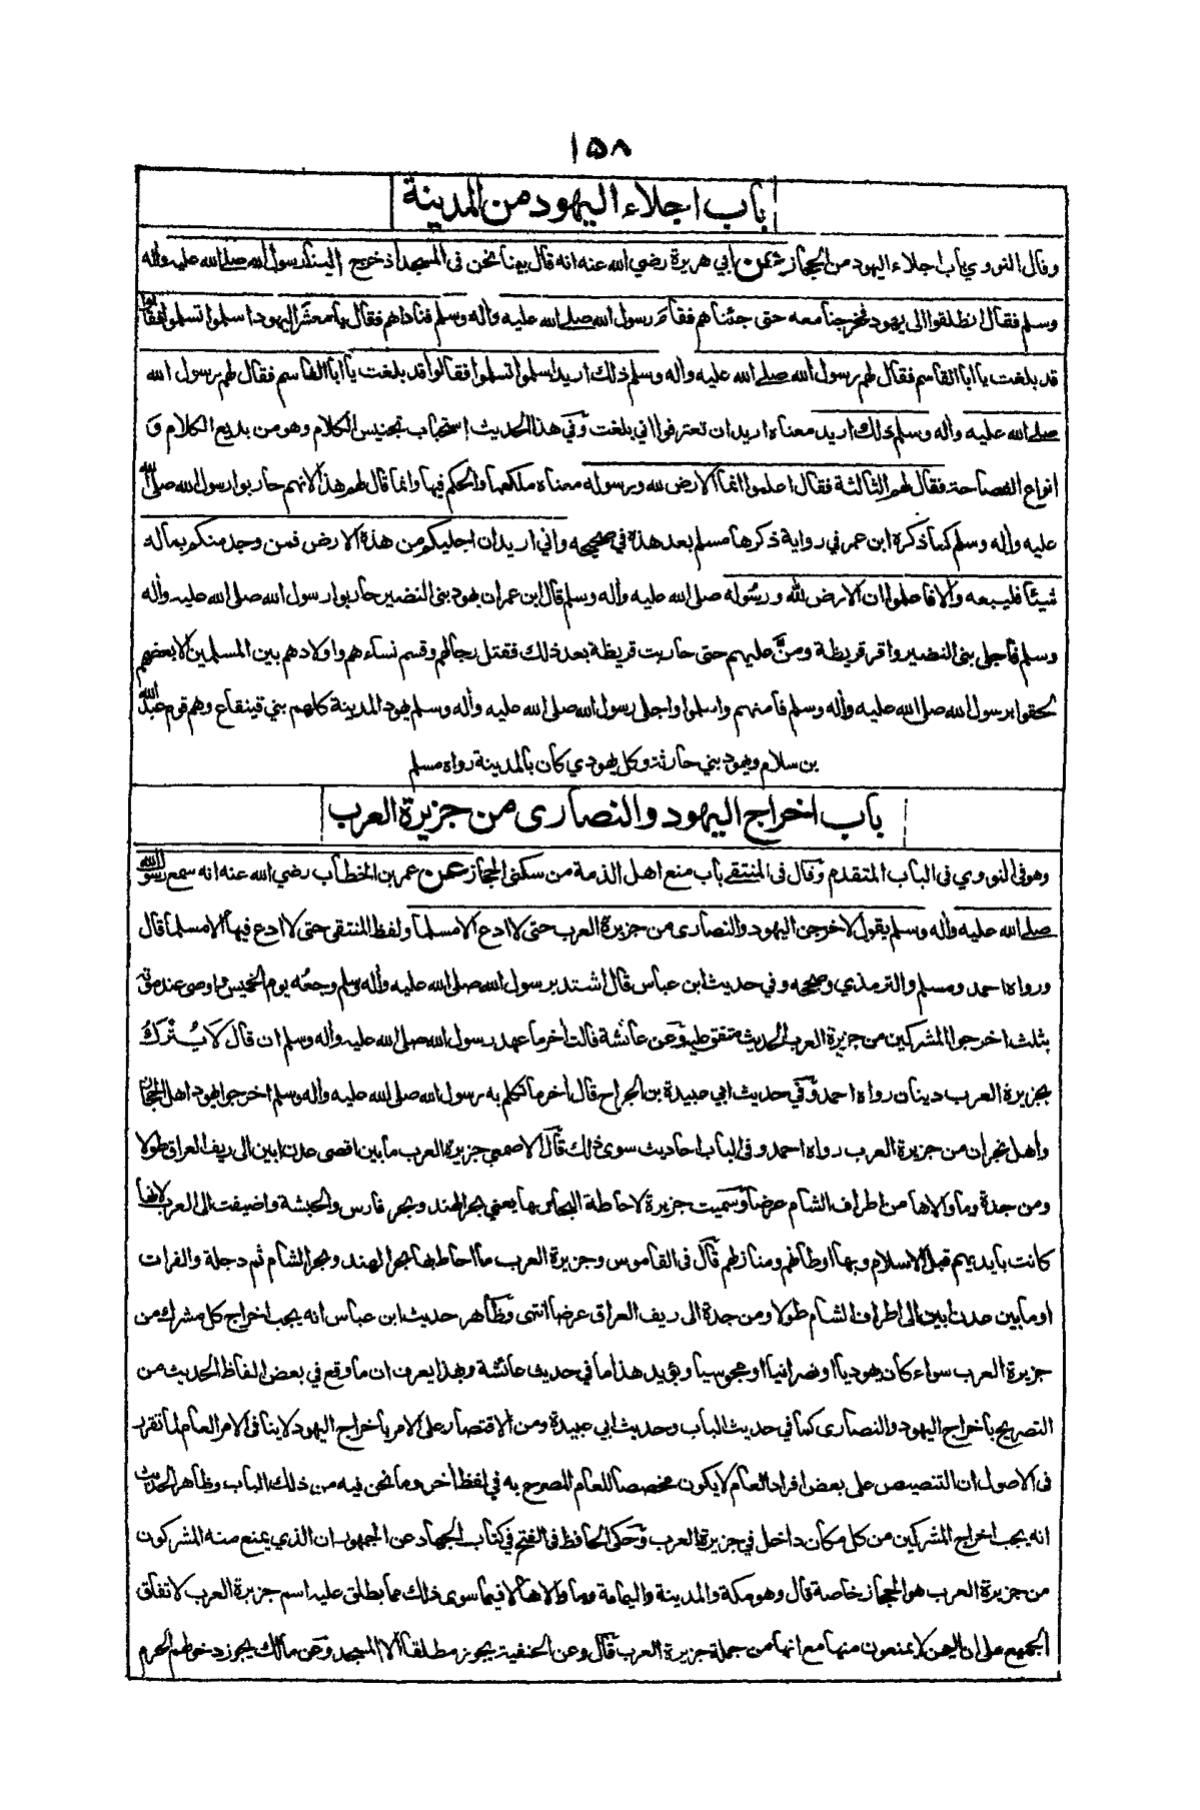 ١٥٨
باب اجلاء اليهود من المدينة
وقال النووي باب اجلاء اليهود من الحجاز عن ابي هريرة رضي الله عنه انه قال بينا نحن في المسجد اذ خرج الينا رسول الله صلى الله عليه وأله
وسلم فقال انطلقوا الى يهود فخرجنا معه حتى جئناهم فقام رسول الله صلى الله عليه وأله وسلم فناداهم فقال يا معشر اليهود اسلموا تسلموا فقالوا
قد بلغت يا ابا القاسم فقال لهم رسول الله صلى الله عليه وأله وسلم ذلك اريد اسلموا تسلموا فقالوا قد بلغت يا ابا القاسم فقال لهم رسول الله
صلى الله عليه وأله وسلم ذلك اريد معناه اريد ان تعترفوا اني بلغت وفي هذا الحديث استحباب تجنيس الكلام وهو من بديع الكلام و
انواع الفصاحة فقال لهم الثالثة فقال اعلموا انما الارض لله ورسوله معناه ملكهما والحكم فيها وانما قال لهم هذا لانهم حاربوا رسول الله صلى الله
عليه وأله وسلم كما ذكره ابن عمر في رواية ذكرها مسلم بعد هذه في صحيحه واني اريد ان اجليكم من هذه الارض فمن وجد منكم بماله
شيئا فليبعه والا فاعلموا ان الارض لله ورسوله صلى الله عليه وأله وسلم قال ابن عمر ان يهود بني النضير حاربوا رسول الله صلى الله عليه وأله
وسلم فاجلى بني النضير واقر قريظة ومنَّ عليهم حتى حاربت قريظة بعد ذلك فقتل رجالهم وقسم نساءهم واولادهم بين المسلمين الا بعضهم
لحقوا برسول الله صلى الله عليه وأله وسلم فأمنهم واسلموا واجلى رسول الله صلى الله عليه وأله وسلم يهود المدينة كلهم بني قينقاع وهم قوم عبد الله
بن سلام ويهود بني حارثة وكل يهودي كان بالمدينة رواه مسلم
باب اخراج اليهود والنصارى من جزيرة العرب
وهو في النووي في الباب المتقدم وقال في المنتقى باب منع اهل الذمة من سكنى الحجاز عن عمر بن الخطاب رضي الله عنه انه سمع رسول الله
صلى الله عليه وأله وسلم يقول لاخرجن اليهود والنصارى من جزيرة العرب حتى لا ادع الا مسلما ولفظ المنتقى حتى لا ادع فيها الا مسلما قال
ورواه احمد ومسلم والترمذي وصححه وفي حديث ابن عباس قال اشتد برسول الله صلى الله عليه وأله وسلم وجعه يوم الخميس واوصى عند موته
بثلث اخرجوا المشركين من جزيرة العرب الحديث متفق عليه وعن عائشة قالت أخر ما عهد رسول الله صلى الله عليه وأله وسلم ان قال لَا يُتْرَكُ
بجزيرة العرب دينان رواه احمد وفي حديث ابي عبيدة بن الجراح قال أخر ما تكلم به رسول الله صلى الله عليه وأله وسلم اخرجوا يهود اهل الحجاز
واهل نجران من جزيرة العرب رواه احمد وفي الباب احاديث سوى ذلك قال الاصمعي جزيرة العرب ما بين اقصى عدن ابين الى ريف العراق طولا
ومن جدة وما والاها من اطراف الشام عرضا وسميت جزيرة لاحاطة البحار بها يعني بحر الهند وبحر فارس والحبشة واضيفت الى العرب لانها
كانت بايديهم قبل الاسلام وبها اوطانهم ومنازلهم قال في القاموس وجزيرة العرب ما احاط بها بحر الهند وبحر الشام ثم دجلة والفرات
او ما بين عدن ابين الى اطراف الشام طولا ومن جدة الى ريف العراق عرضا انتهى وظاهر حديث ابن عباس انه يجب اخراج كل مشرك من
جزيرة العرب سواء كان يهوديا او نصرانيا او مجوسيا ويؤيد هذا ما في حديث عائشة وبهذا يعرف ان ما وقع في بعض الفاظ الحديث من
التصريح باخراج اليهود والنصارى كما في حديث الباب وحديث ابي عبيدة ومن الاقتصار على الامر باخراج اليهود لا ينافي الامر العام لما تقرر
في الاصول ان التنصيص على بعض افراد العام لا يكون مخصصا للعام المصرح به في لفظ أخر وما نحن فيه من ذلك الباب وظاهر الحديث
انه يجب اخراج المشركين من كل مكان داخل في جزيرة العرب وحكى الحافظ في الفتح في كتاب الجهاد عن الجمهور ان الذي يمنع منه المشركون
من جزيرة العرب هو الحجاز خاصة قال وهو مكة والمدينة واليمامة وما والاها لا فيما سوى ذلك مما يطلق عليه اسم جزيرة العرب لاتفاق
الجميع على ان اليمن لا يمنعون منها مع انها من جملة جزيرة العرب قال وعن الحنفية يجوز مطلقا الا المسجد وعن مالك يجوز دخولهم الحرم